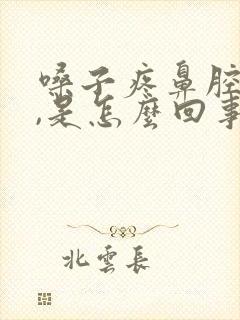 嗓子疼鼻腔
,是怎麽回事
北雲長